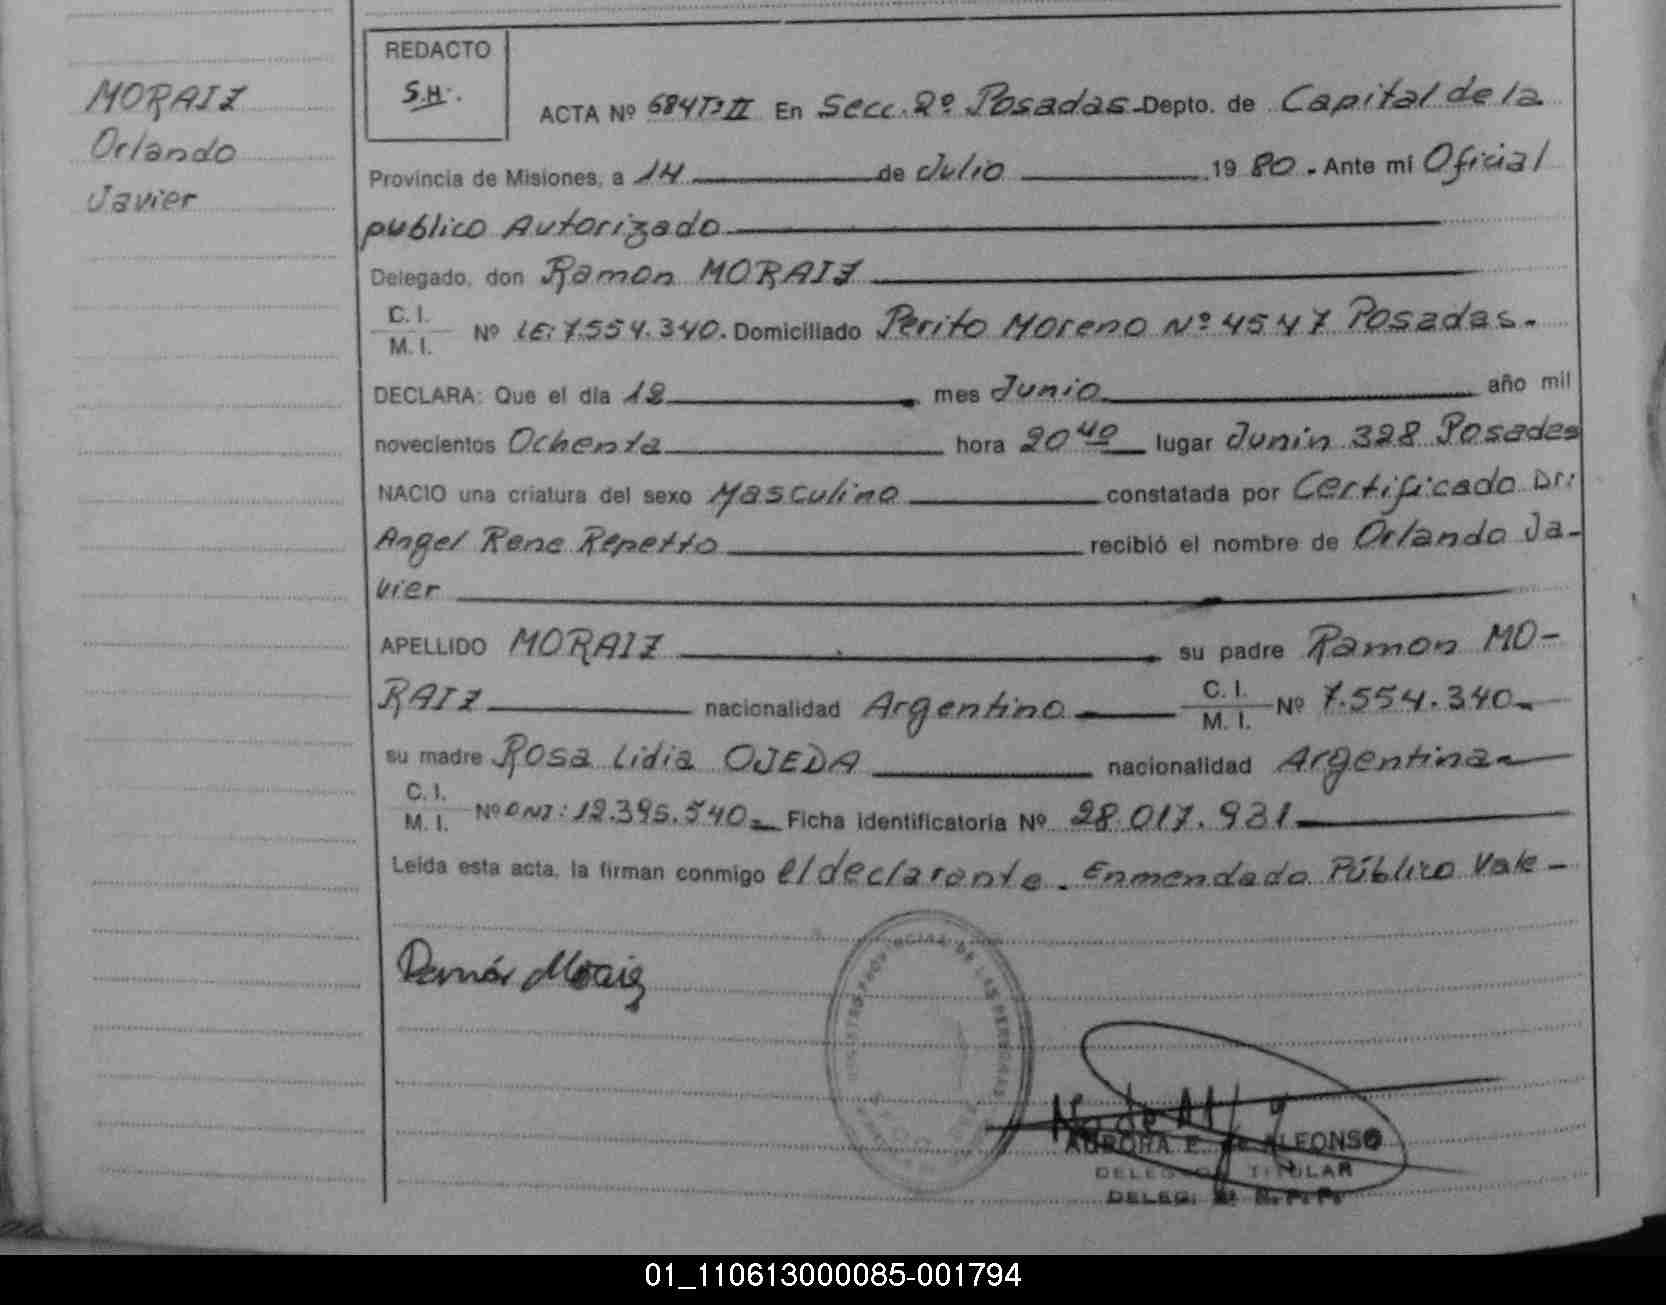 MORAIZ
Orlando
Javier
REDACTO
S.H.
ACTA Nº 684 Tº II En Secc. 2º Posadas Depto. de Capital de la
Provincia de Misiones, a 14 de Julio 19 80. Ante mi Oficial
publico Autorizado
Delegado, don Ramon MORAIZ
C. I.
M. I. Nº LE: 7.554.340. Domiciliado Perito Moreno Nº 4547 Posadas.
DECLARA: Que el dia 12 mes Junio año mil
novecientos Ochenta hora 20 40 lugar Junin 328 Posadas
NACIO una criatura del sexo Masculino constatada por Certificado Dr:
Angel Rene Repetto recibió el nombre de Orlando Ja-
vier
APELLIDO MORAIZ su padre Ramon MO-
RAIZ nacionalidad Argentino C. I. M. I. Nº 7.554.340.
su madre Rosa Lidia OJEDA nacionalidad Argentina
C. I.
M. I. Nº DNI: 12.395.540 Ficha identificatoria Nº 28.017.931
Leida esta acta, la firman conmigo el declarante. Enmendado Público Vale-
Ramón Moraiz
AURORA E. de ALFONSO
DELEGADO TITULAR
DELEG. R.P.P.
01_110613000085-001794